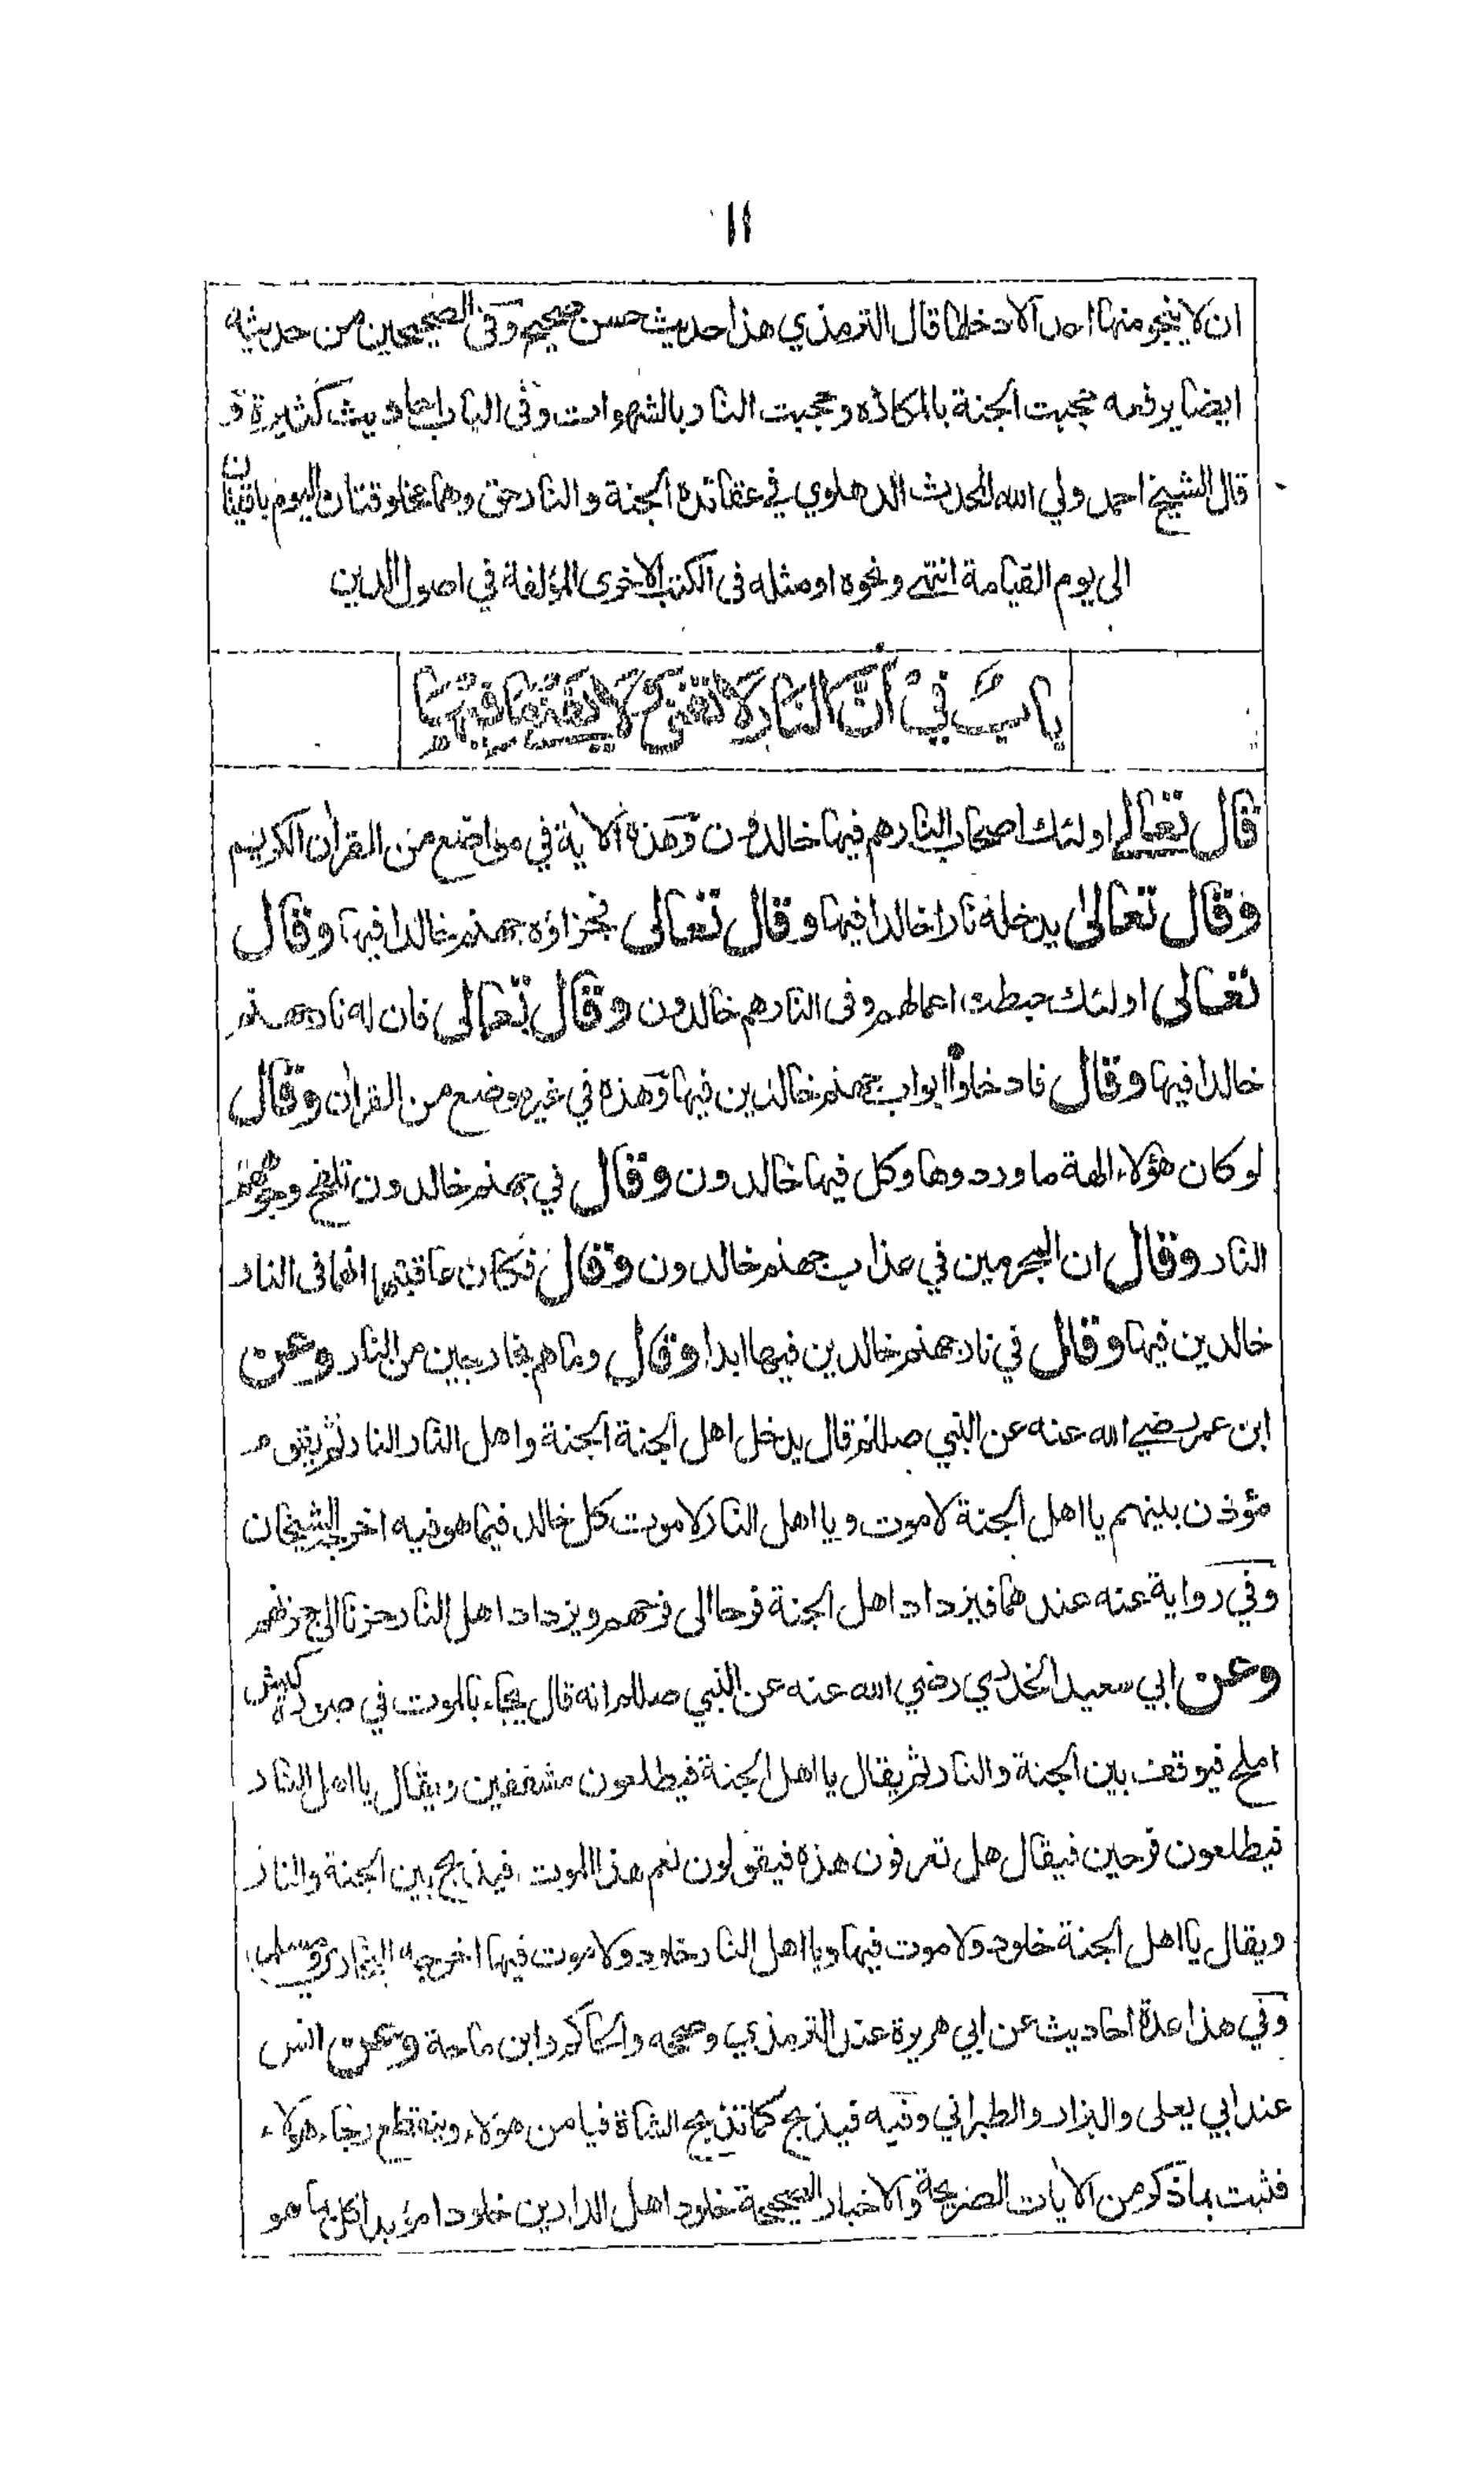 ١١
ان لا ينجو منها احد الا دخلها قال الترمذي هذا حديث حسن صحيح وفى الصحيحين من حديثه
ايضا يرفعه حجبت الجنة بالمكاره وحجبت النار بالشهوات وفى الباب احاديث كثيرة و
قال الشيخ احمد ولي الله المحدث الدهلوي في عقائده الجنة والنار حق وهما مخلوقتان اليوم باقيتان
الى يوم القيامة انتهى ونحوه او مثله فى الكتب الاخرى المؤلفة في اصول الدين
بَابٌ فِيْ اَنَّ النَّارَ لَا تَفْنٰى وَلَا يَفْنٰى مَا فِيْهَا
قال تعالى اولئك اصحاب النار هم فيها خالدون وهذه الاية في مواضع من القران الكريم
وقال تعالى يدخله نارا خالدا فيها وقال تعالى فجزاؤه جهنم خالدا فيها وقال
تعالى اولئك حبطت اعمالهم وفى النار هم خالدون وقال تعالى فان له نار جهنم
خالدا فيها وقال فادخلوا ابواب جهنم خالدين فيها وهذه في غير موضع من القران وقال
لو كان هؤلاء الهة ما وردوها وكل فيها خالدون وقال في جهنم خالدون تلفح وجوههم
النار وقال ان المجرمين في عذاب جهنم خالدون وقال فكان عاقبتهما انهما فى النار
خالدين فيها وقال في نار جهنم خالدين فيها ابدا وقال وما هم بخارجين من النار وعن
ابن عمر رضي الله عنه عن النبي صللم قال يدخل اهل الجنة الجنة واهل النار النار ثم يقوم
مؤذن بينهم يا اهل الجنة لا موت ويا اهل النار لا موت كل خالد فيما هو فيه اخرجه الشيخان
وفي رواية عنه عندهما فيزداد اهل الجنة فرحا الى فرحهم ويزداد اهل النار حزنا الى حزنهم
وعن ابي سعيد الخدري رضي الله عنه عن النبي صللم انه قال يجاء بالموت في صورة كبش
املح فيوقف بين الجنة والنار ثم يقال يا اهل الجنة فيطلعون مشفقين ويقال يا اهل النار
فيطلعون فرحين فيقال هل تعرفون هذه فيقولون نعم هذا الموت فيذبح بين الجنة والنار
ويقال يا اهل الجنة خلود ولا موت فيها ويا اهل النار خلود ولا موت فيها اخرجه البخاري ومسلم
وفي هذا عدة احاديث عن ابي هريرة عند الترمذي وصححه والحاكم وابن ماجة وعن انس
عند ابي يعلى والبزار والطبراني وفيه فيذبح كما تذبح الشاة فيامن هؤلاء وينقطع رجاء هؤلاء
فثبت بما ذكر من الايات الصريحة والاخبار الصحيحة خلود اهل الدارين خلودا مؤبدا كل بما هو